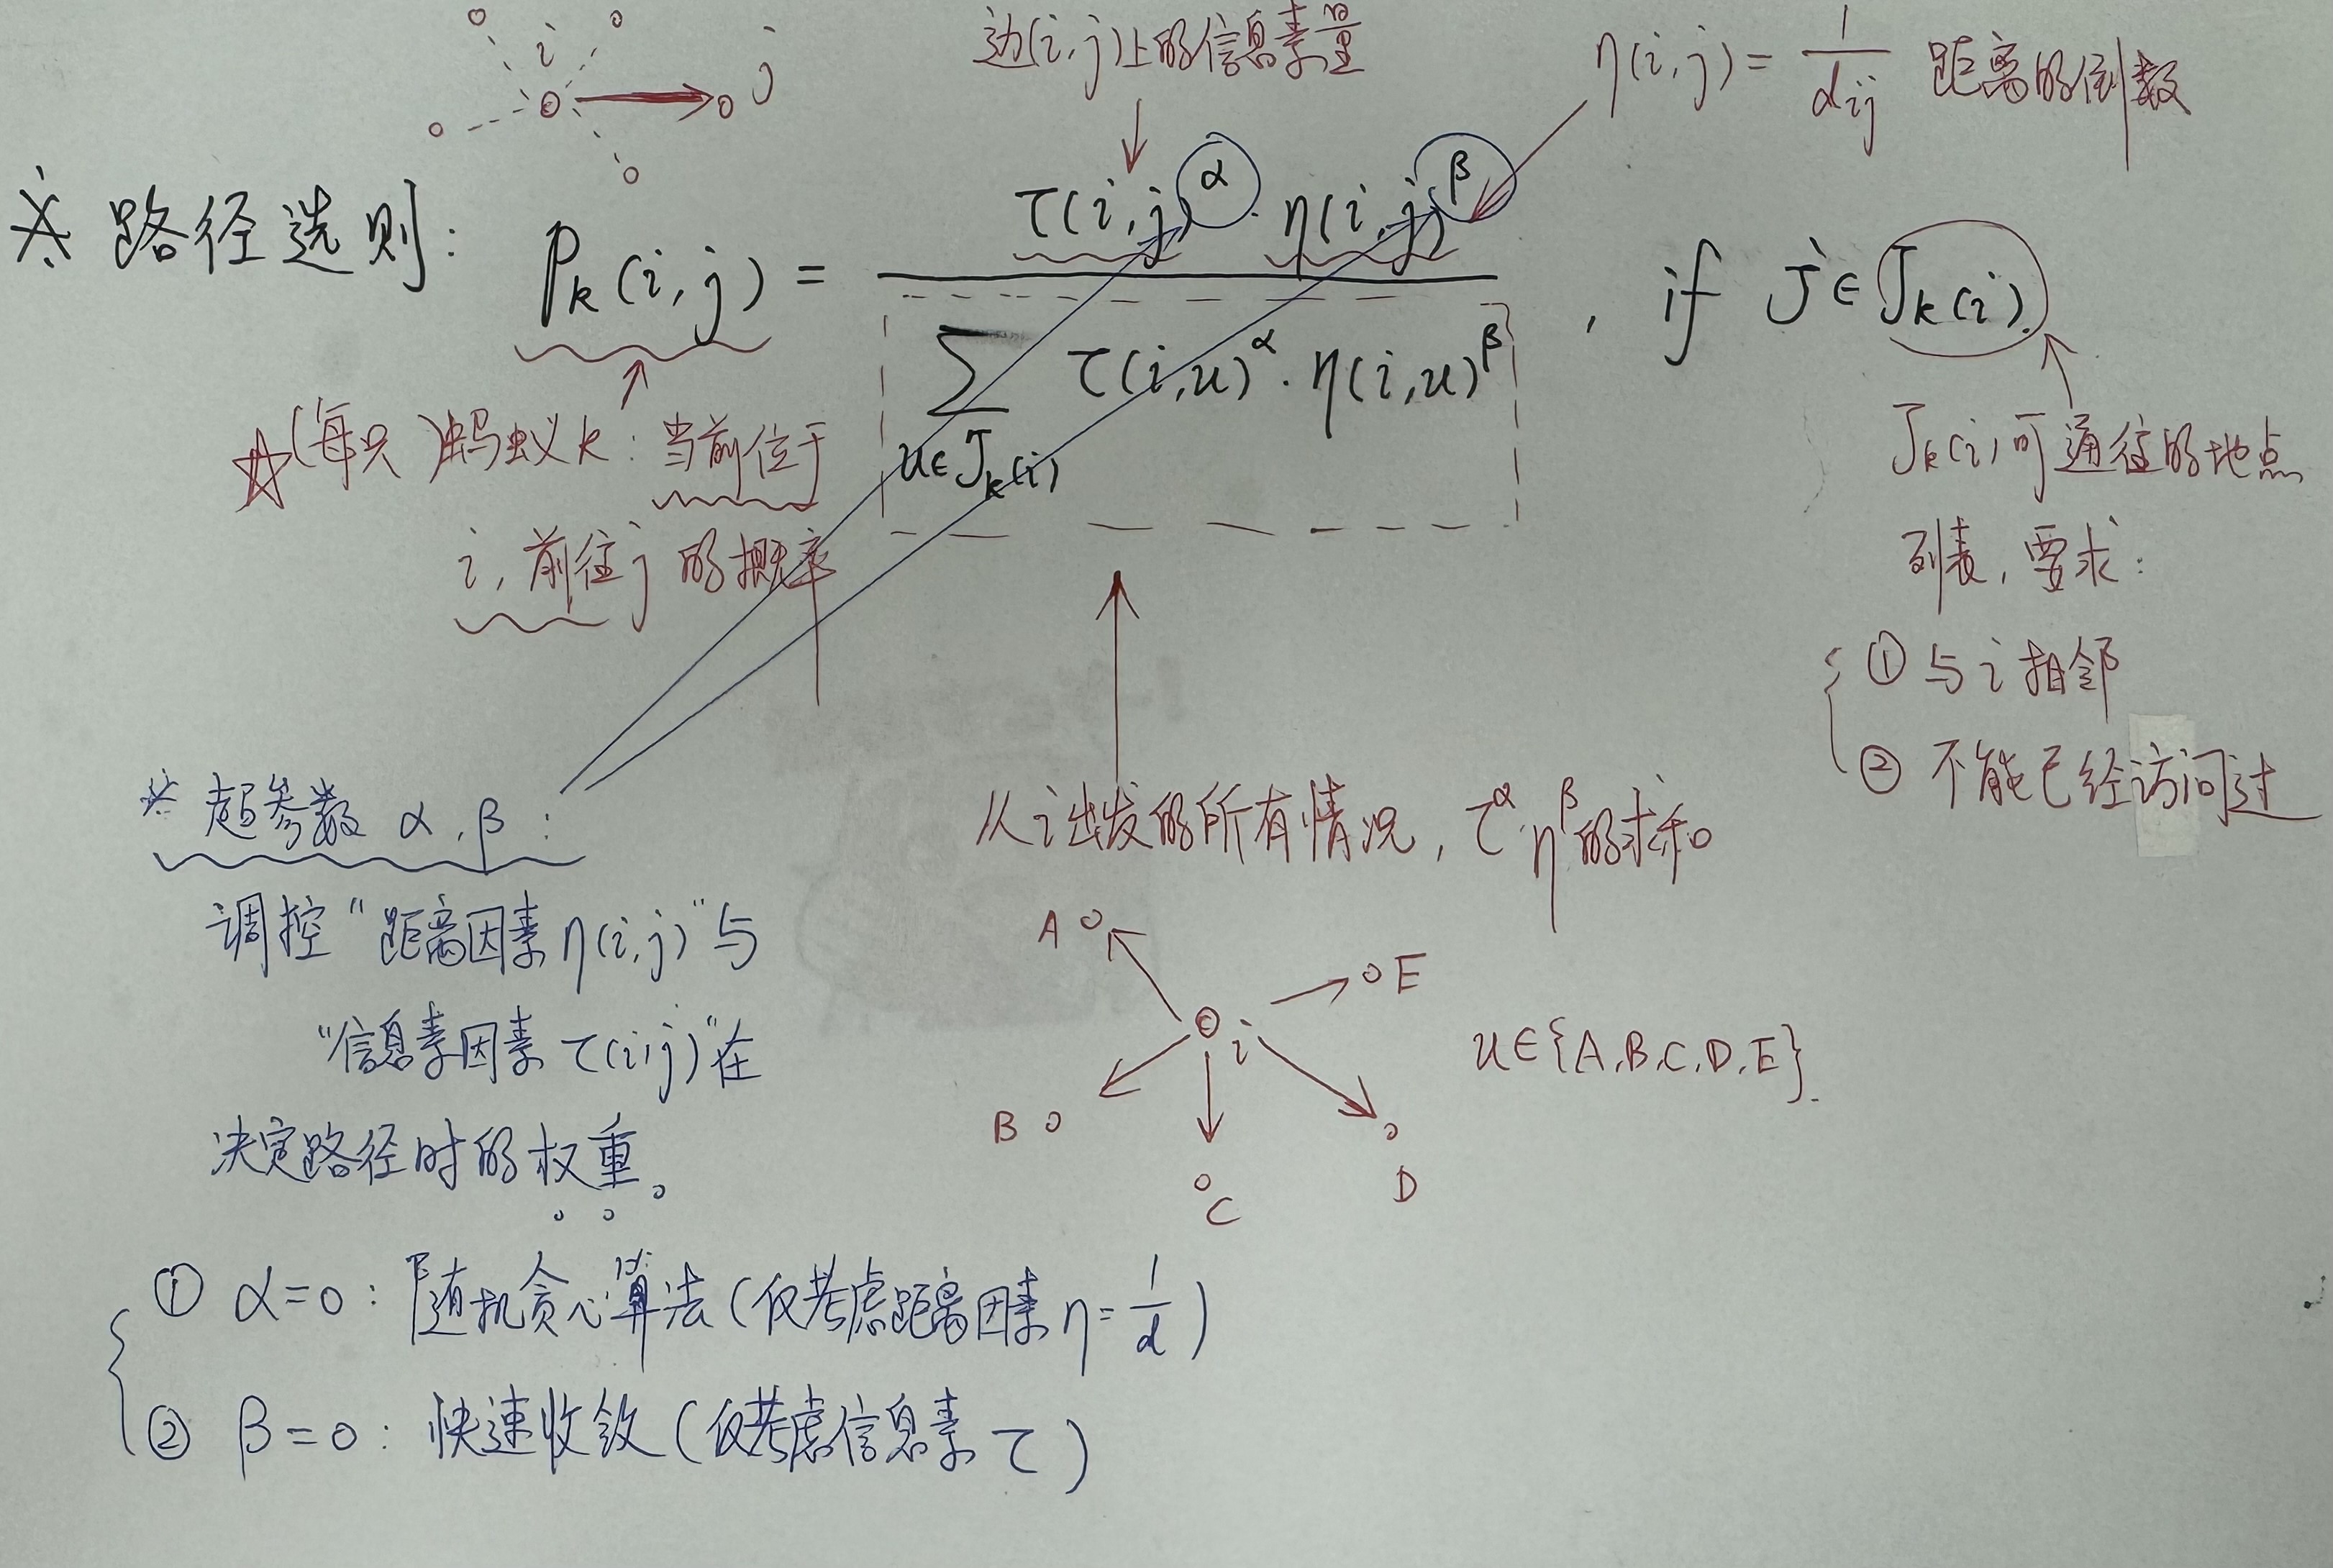 i
j
边(i,j)上的信息素量
η(i,j) = 1/dij 距离的倒数
路径选则: Pk(i,j) = τ(i,j)^α · η(i,j)^β / Σ u∈Jk(i) τ(i,u)^α · η(i,u)^β , if J∈Jk(i).
(每只)蚂蚁k: 当前位于
i, 前往j的概率
Jk(i)可通往的地点
列表, 要求:
① 与i相邻
② 不能已经访问过
从i出发的所有情况, τ^α η^β的求和
A
E
i
B
C
D
u∈{A,B,C,D,E}.
* 超参数 α,β:
调控"距离因素η(i,j)"与
"信息素因素τ(i,j)"在
决定路径时的权重。
① α=0: 随机贪心算法(仅考虑距离因素η=1/d)
② β=0: 快速收敛(仅考虑信息素τ)